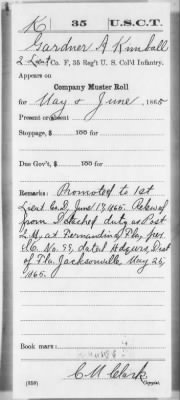 K | 35 | U.S.C.T.
Gardner A Kimball
2 Lieut, Co. F, 35 Reg't U. S. Col'd Infantry.
Appears on
Company Muster Roll
for May & June, 1865
Present or absent
Stoppage, $ 100 for
Due Gov't, $ 100 for
Remarks: Promoted to 1st
Lieut Co. D, June 1, 1865. Relieved
from Detached duty as Post
at Fernandina Fla, per
S.O. No. 99, dated Hdqurs, Dist
of Fla. Jacksonville May 25,
1865.
Book mark:
(358)
C M Clark
Copyist.